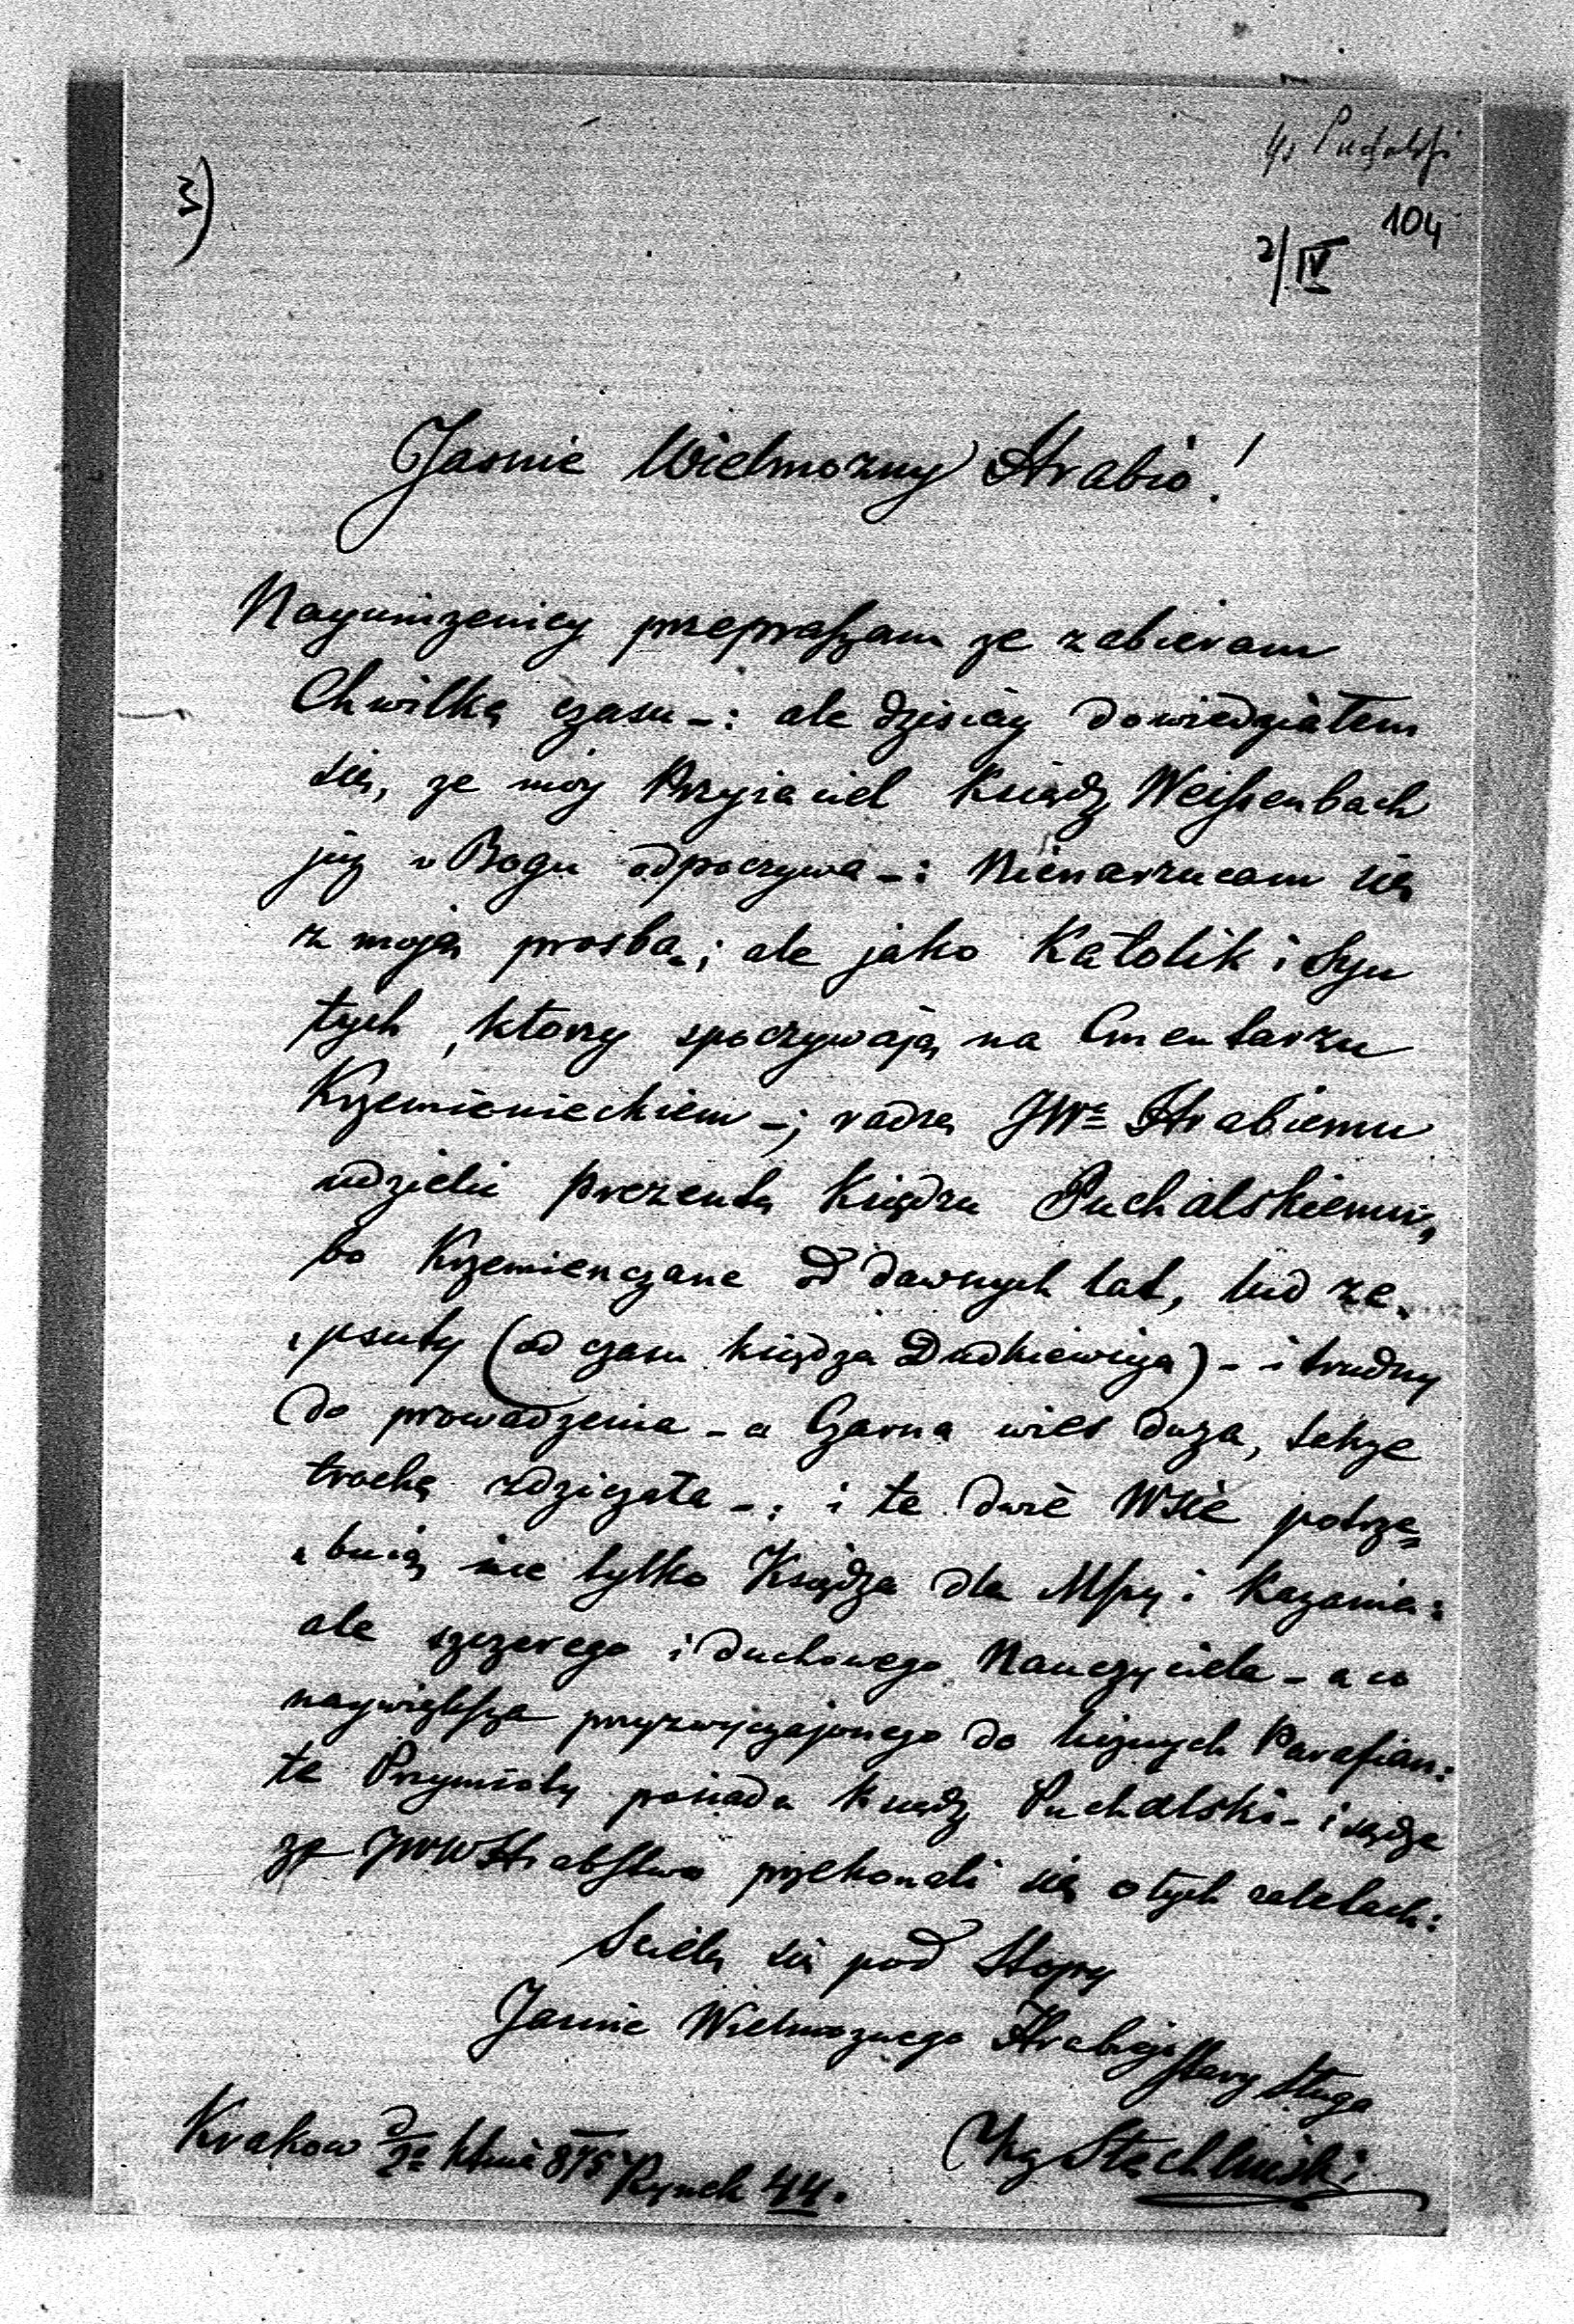 3)
104
2/IV
Jasnie Wielmozny Hrabio!
Nayunizeniey przepraszam ze zabieram
Chwilkę czasu -: ale dzisiay dowiedziałem
się, ze móy Przyiaciel Ksiądz Weissenbach
juz w Bogu odpoczywa -: Nienarzucam się
z moją prosbą; ale jako Katolik i Syn
tych, ktorzy spoczywają na Cmentarzu
Krzemienieckiem -; radzę JWe Hrabiemu
udzielic prezentę Księdzu Puchalskiemu,
bo Krzemienczane od dawnych lat, lud ze-
psuty (od czasu księdza Dudkiewicza) - i trudny
do prowadzenia - a Czarna wies duza, takze
trochę zdziczała -: i te dwie Wsie potrze-
buią nie tylko Księdza dla Mszy i Kazania:
ale szczerego i duchowego Nauczyciela - a co
naywiększa przyzwyczajonego do licznych Parafian:
te Przymioty posiada ksiądz Puchalski - i sądzę
ze JWW Hrabstwo przekonali się o tych zaletach:
Scielę się pod Stopy
Jasnie Wielmoznego Hrabiego
Stary Sługa
Krakow d 2 875 Rynek 44.